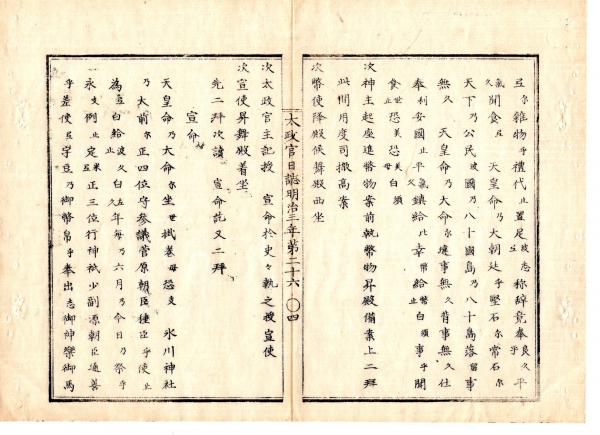 弖尓雜物乎禮代止置足弖波志称辞竟奉良久乎平
氣久聞食弖　天皇命乃大朝廷乎堅石尓常石尓
天下乃公民波國乃八十國島乃八十島落留事
無久　天皇命乃大命尓違事無久背事無久仕
奉利安國止平氣久鎮給比止幸幣給幣止白須事乎聞
食世止恐美恐美毛白須
次神主起座進幣物案前執幣物昇殿備案上二拜
此間用度司撤高案
次幣使降殿候舞殿西坐
太政官日誌明治三年第二十六　〇四
次太政官主記授　宣命於史々執之授宣使
次宣使昇舞殿着坐
先二拜次讀　宣命訖又二拜
宣命
天皇命乃大命尓坐世挂卷毋恐支　氷川神社
乃大前尓正四位守参議菅原朝臣種臣乎使止
為弖白給波久白久左年每乃六月乃今日乃祭乎
永支例止定米弖正三位行神祇少副源朝臣通善
乎差使弖宇豆乃御幣帛乎奉出志御神樂御馬